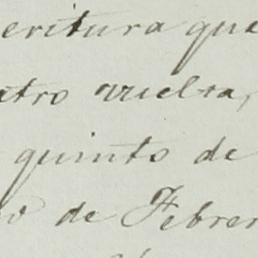 eritura que
atro vuelta,
quinto de
o de Febrer